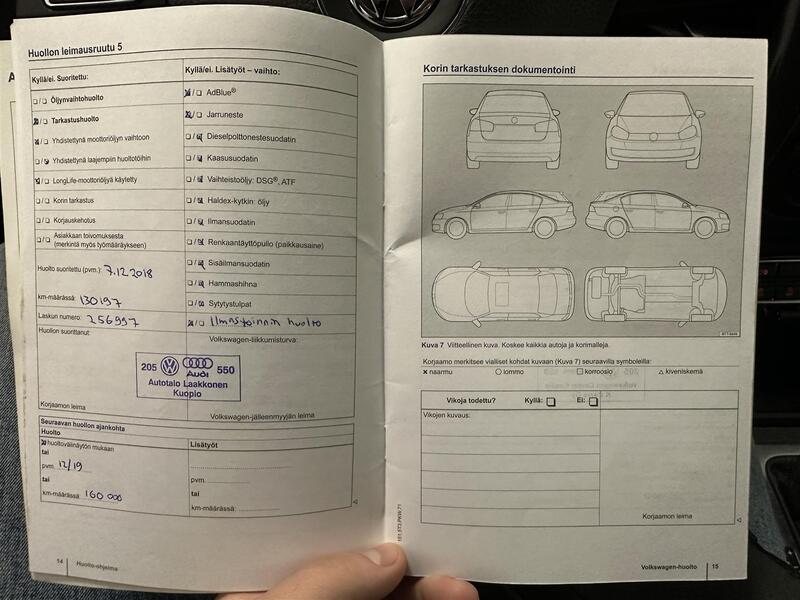 Huollon leimausruutu 5
Kyllä/ei. Suoritettu:
Öljynvaihtohuolto
Tarkastushuolto
Yhdistettynä moottoriöljyn vaihtoon
Yhdistettynä laajempiin huoltotöihin
LongLife-moottoriöljyä käytetty
Korin tarkastus
Korjauskehotus
Asiakkaan toivomuksesta
(merkintä myös työmääräykseen)
Huolto suoritettu (pvm.): 7.12.2018
km-määrässä: 130197
Laskun numero: 256997
Huollon suorittanut:
205 550
Audi
Autotalo Laakkonen
Kuopio
Korjaamon leima
Kyllä/ei. Lisätyöt – vaihto:
AdBlue®
Jarruneste
Dieselpolttonestesuodatin
Kaasusuodatin
Vaihteistoöljy: DSG®, ATF
Haldex-kytkin: öljy
Ilmansuodatin
Renkaantäyttöpullo (paikkausaine)
Sisäilmansuodatin
Hammashihna
Sytytystulpat
Ilmastoinnin huolto
Volkswagen-liikkumisturva:
Volkswagen-jälleenmyyjän leima
Seuraavan huollon ajankohta
Huolto
huoltovälinäytön mukaan
tai
pvm. 12/19
tai
km-määrässä: 160 000
Lisätyöt
pvm.
tai
km-määrässä:
14 Huolto-ohjelma
Korin tarkastuksen dokumentointi
Kuva 7 Viitteellinen kuva. Koskee kaikkia autoja ja korimalleja.
Korjaamo merkitsee vialliset kohdat kuvaan (Kuva 7) seuraavilla symboleilla:
naarmu lommo korroosio kiveniskemä
Vikoja todettu? Kyllä: Ei:
Vikojen kuvaus:
Korjaamon leima
Volkswagen-huolto 15